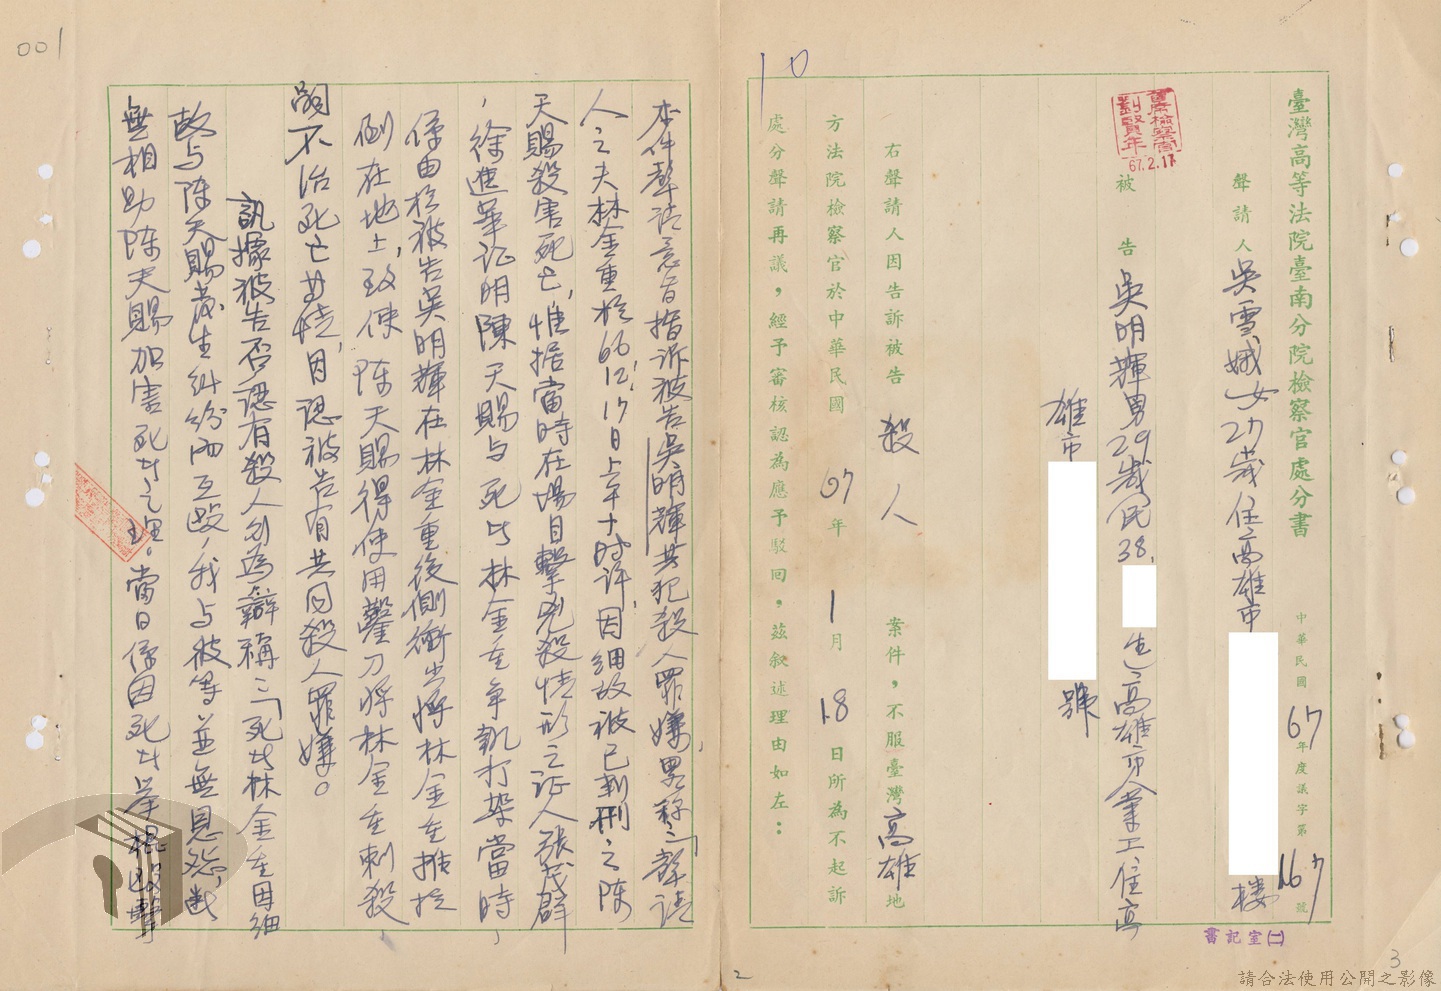 臺灣高等法院臺南分院檢察官處分書
中華民國67年度議字第167號
聲請人吳雪娥女27歲住高雄市
樓
首席檢察官
67.2.17
被告吳明輝男29歲民38.
生)高雄市人業工住高
雄市
號
右聲請人因告訴被告殺人案件,不服臺灣高雄地
方法院檢察官於中華民國67年1月18日所為不起訴
處分聲請再議,經予審核認為應予駁回,茲敘述理由如左:
書記室㈡
10
2
3
001
本件聲請意旨指訴被告吳明輝共犯殺人罪嫌,略稱:「聲請
人之夫林金重於66.12.17日上午十時許,因細故被已判刑之陳
天賜殺害死亡,惟據當時在場目擊兇殺情形之証人張茂群
、徐進華証明陳天賜与死者林金重爭執打架當時,
係由於被告吳明輝在林金重後側衝出將林金重推於
倒在地上,致使陳天賜得使用鑿刀將林金重刺殺,
不治死亡其情,因認被告有共同殺人罪嫌。
訊據被告否認有殺人行為辯稱:「死者林金重因細
故与陳天賜發生糾紛而互毆,我与彼等並無恩怨,
無相助陳天賜加害死者之理。當日係因死者舉棍毆擊
請合法使用公開之影像